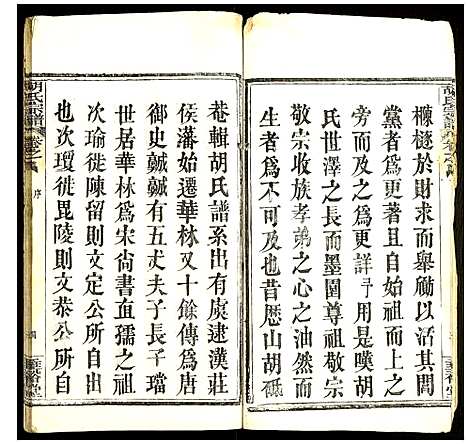 檁極於財求而舉勵以活其間
黨者爲更著且自始祖而上
旁而及之爲更詳予用是嘆胡
氏世澤之長而墨園尊祖敬宗
敬宗收族孝弟之心之油然而
生者爲不可及也昔歷山胡
菴輯胡氏譜系出有虞逮漢莊
侯藩始遷華林又十餘傳爲唐
御史虣虣有五丈夫子長璫
世居華林爲宋尚書直孺之祖
次瑜徙陳留則文定公所自出
也次瓊徙毘陵則文恭公所自
胡氏宗譜
序